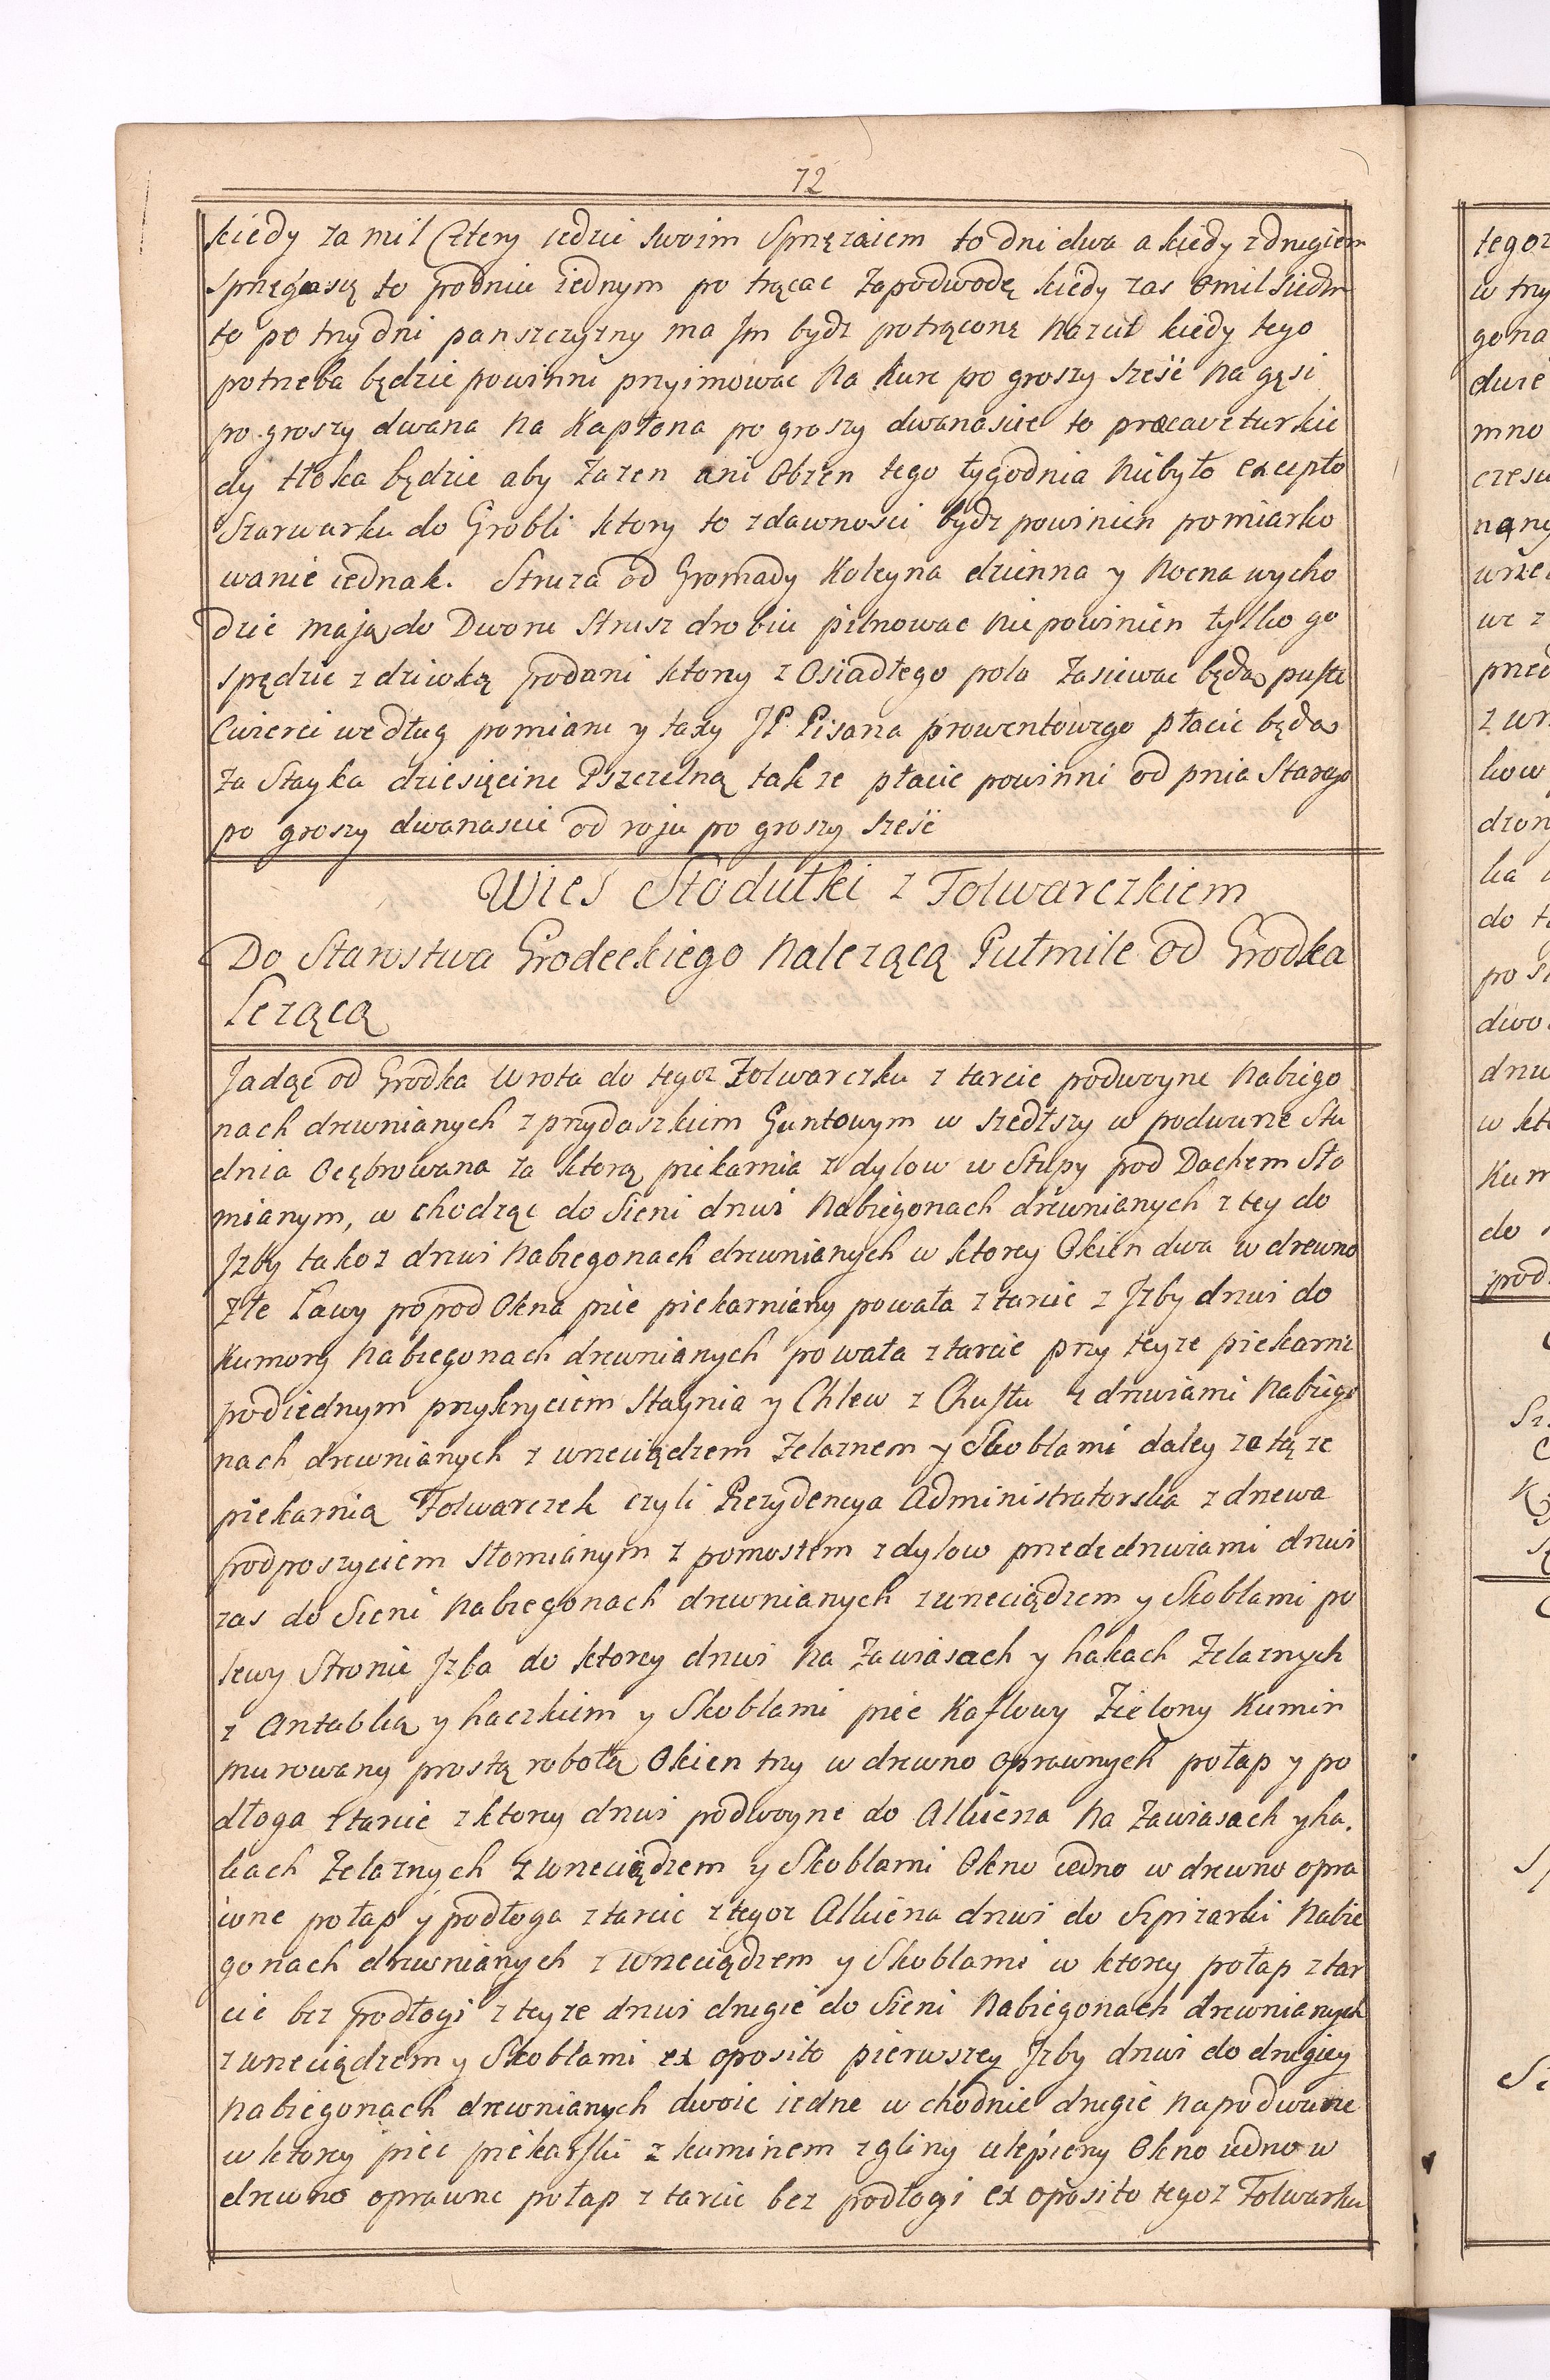 72
kiedy za mil Cztery iedzie swoim Spręzaiem to dni dwa a kiedy z drugiem
sprzęgasię to podniu iednym po trącac zapodwodę kiedy zas omil siedm
to po trzy dni panszczyzny ma Jm bydz potrąconę
potrzeba będzie powinni przyimowac na kure po groszy sześć na gęsi
po groszy dwana na Kapłona po groszy dwanascie to
dy tłoka będzie aby zazen ani Obzen tego tygodnia niebyło excepto
Szarwarku do Grobli ktory to zdawnosci bydz powinien pomiarko
wanie iednak. Struza od Gromady Koleyna dzienna y Nocna wycho
dzic mają do Dworu Strusz drobiu pilnowac nie powinien tylko go
spędzic z dziwką podani ktorzy z Osiadłego pola zasiewac będą puste
Cwierci według pomiaru y taxy JP Pisarza prowentowego płacic będą
za Stayka dziesięcine Pszczelną takze płacic powinni od pnia Starego
po groszy dwanascie od roju po groszy sześć
Wies Stodułki z Folwarczkiem
Do Starostwa Grodeckiego Nalezącą Pułmile od Grodka
Lezącą
Jadąc od Grodka Wrota do tegoz Folwarczku z tarcic podwoyne Nabiego
nach drewnianych z przydaszkiem Guntowym w szedłszy w podworze Stu
dnia Ocębrowana za ktorą piekarnia z dylow w Słupy pod Dachem Sło
mianym, w chodząc do Sieni drzwi Nabiegonach drewnianych z tey do
Jzby takoz drzwi Nabiegonach drewnianych w ktorey Okien dwa w drewno
złe Ławy popod Okna piec piekarniany powała z tarcic z Jzby drzwi do
Kumory Nabiegonach drewnianych powała z tarcic przy teyze piekarni
podiednym przykryciem Staynia y Chlew z Chustu z drzwiami Nabiego
nach drewnianych z wrzeciądzem Zelaznem y Skoblami daley za tą ze
piekarnią Folwarczek czyli Rezydencya Administratorska z drzewa
podposzyciem słomianym z pomostem z dylow przede drzwiami drzwi
zas do Sieni Nabiegonach drewnianych z wrzeciądzem y Skoblami po
lewy Stronie Jzba do ktorey drzwi Na Zawiasach y hakach Zelaznych
z Antabką y haczkiem y Skoblami piec Kaflowy Zielony Kumin
murowany prostą robotą Okien trzy w drewno oprawnych połap y po
dłoga z tarcic z ktorey drzwi podwoyne do Alkierza Na Zawiasach y ha.
kach Zelaznych z wrzeciądzem y Skoblami Okno iedno w drewno opra
wne połap y podłoga z tarcic z tegoz Alkierza drzwi do Szpizarki Nabie
gonach drewnianych z wrzeciądzem y Skoblami w ktorey połap z tar
cic bez podłogi z teyze drzwi drugie do Sieni Nabiegonach drewnianych
z wrzeciądzem y Skoblami ex oposito pierwszey Jzby drzwi do drugiey
Nabiegonach drewnianych dwoie iedne w chodnie drugie Na podworze
w ktorey piec piekarski z kuminem z gliny ulepiony Okno iedno w
drewno oprawne połap z tarcic bez podłogi ex oposito tegoz Folwarku